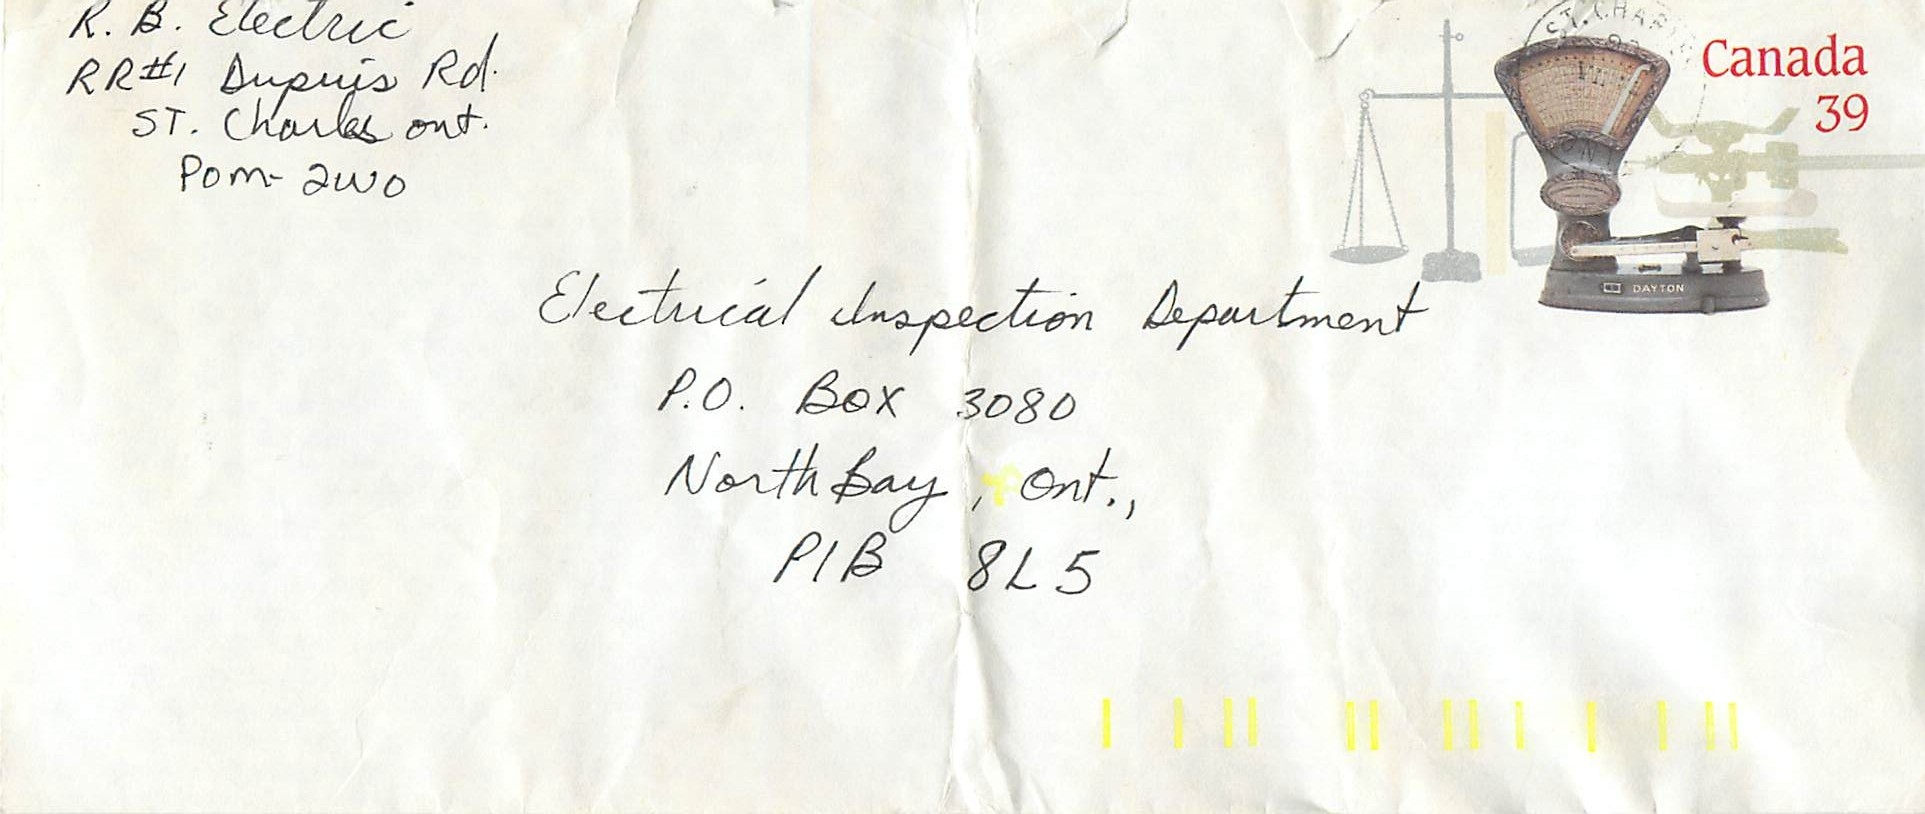 R. B. Electric
RR#1 Dupuis Rd.
ST. Charles ont.
POM- 2WO
Canada
39
ST. CHARLES
ONT
DAYTON
Electrical Inspection Department
P.O. BOX 3080
North Bay, Ont.,
P1B 8L5